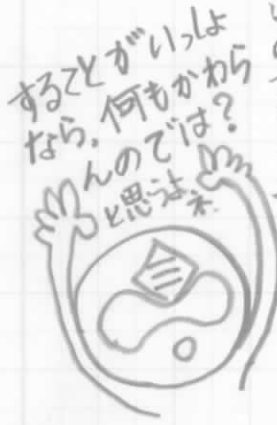 することがいっしょ
なら、何もかわら
んのでは？
と思うよネ